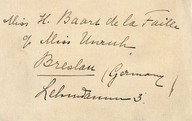 Miss H. Baart de la Faille
c/o Miss Unruh
Breslau (Germany)
Lehmdamm 3.